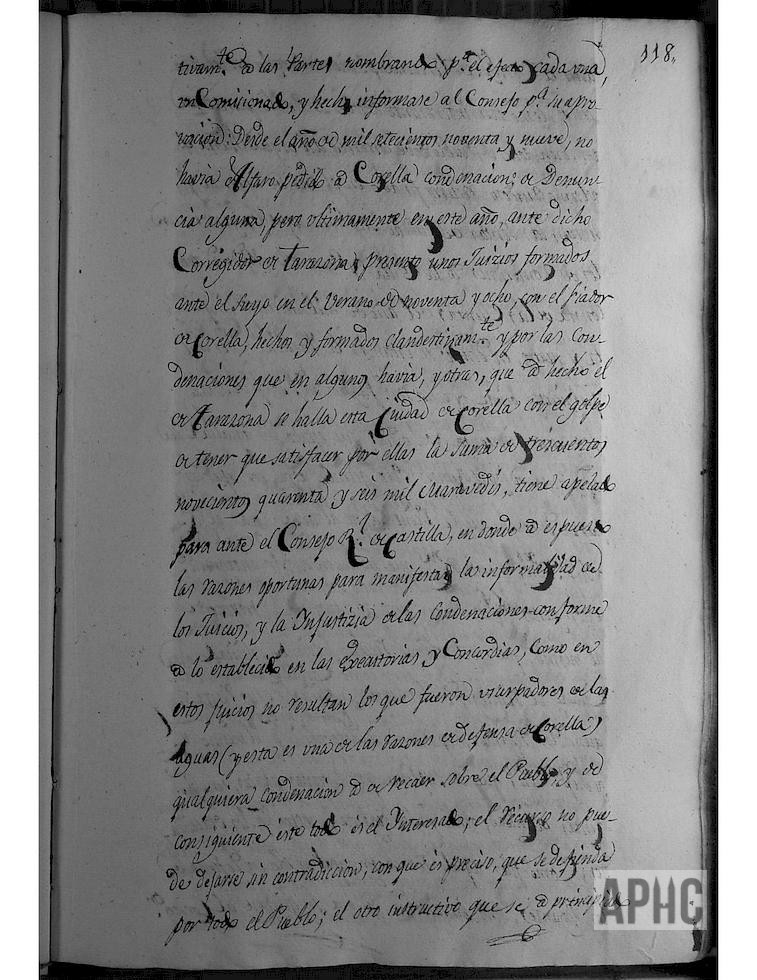 118.
tivam.te a las Partes nombrando p.a el efecto cada una,
un Comisionado, y hecho informase al Consejo p.a su apro-
vacion: Desde el año de mil setecientos noventa y nueve, no
havia Alfaro pedido a Corella condenacion, de Denun-
cia alguna, pero ultimamente en este año, ante dicho
Corregidor de Tarazona, presento unos Juizios formados
ante el suyo en el Verano de noventa y ocho, con el fiador
de Corella, hechos y formados clandestinam.te y por las Con-
denaciones que en algunos havia, y otras, que a hecho el
de Tarazona se halla esta Ciudad de Corella con el golpe
de tener que satisfacer por ellas la suma de trescientos
novecientos quarenta y seis mil Maravedis, tiene apelado
para ante el Consejo R.l de Castilla, en donde a espuesto
las razones oportunas para manifestar la informalidad de
los Juicios, y la Injustizia de las Condenaciones conforme
a lo establecido en las Executorias y Concordias, Como en
estos juicios no resultan los que fueron usurpadores de las
Aguas (y esta es una de las razones de defensa de Corella)
qualquiera Condenacion a de recaer sobre el Pueblo, y de
consiguiente este todo es el Interesado; el recurso no pue-
de dejarse sin contradiccion, con que es preciso, que se defienda
por todo el Pueblo; el otro instructivo que se a principiado
APHC